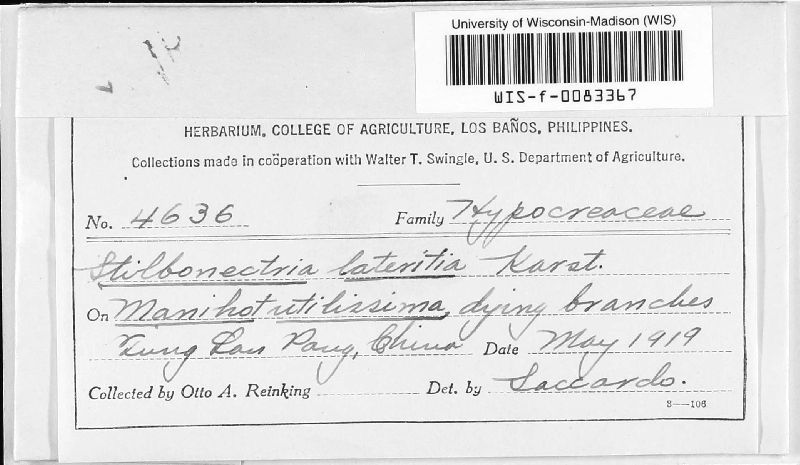 University of Wisconsin-Madison (WIS)
WIS-f-0083367
HERBARIUM, COLLEGE OF AGRICULTURE, LOS BAÑOS, PHILIPPINES.
Collections made in coöperation with Walter T. Swingle, U. S. Department of Agriculture.
No. 4636 Family Hypocreaceae
Stilbonectria lateritia Karst.
On Manihot utilissima, dying branches
Lau Pong, China Date May 1919
Collected by Otto A. Reinking Det. by Saccardo.
3—106